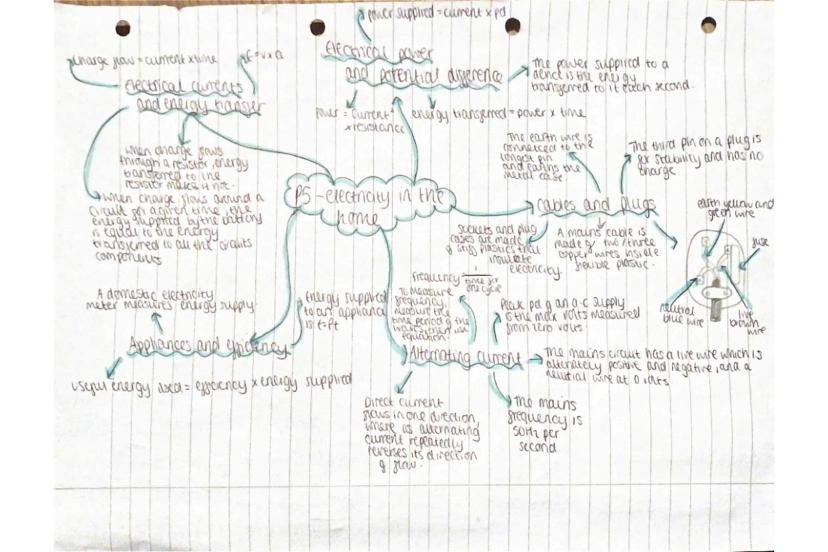 power supplied = current x pd
Electrical power
and potential difference
The power supplied to a
device is the energy
transferred to it each second.
power = current²
x resistance
energy transferred = power x time
charge flow = current x time
E = V x Q
Electrical currents
and energy transfer
when charge flows
through a resistor, energy
transferred to the
resistor makes it hot.
when charge flows around a
circuit for a given time, the
energy supplied by the battery
is equal to the energy
transferred to all the circuits
components
P5 - electricity in the
home
The earth wire is
connected to the
longest pin
and earths the
metal case.
The third pin on a plug is
for stability and has no
charge
Cables and plugs
sockets and plug
cases are made
of stiff plastics that
insulate
electricity.
A mains cable is
made of two/three
copper wires inside
flexible plastic.
earth yellow and
green wire
fuse
neutral
blue wire
live
brown
wire
A domestic electricity
meter measures energy supply.
Energy supplied
to an appliance
is E=Pt
Appliances and efficiency
useful energy used = efficiency x energy supplied
frequency = 1
time for
one cycle
To measure
frequency,
measure the
time period of the
waves, then use
equation.
Peak pd of an a-c supply
is the max volts measured
from zero volts.
Alternating current
The mains circuit has a live wire which is
alternately positive and negative, and a
neutral wire at 0 volts
Direct current
flows in one direction,
where as alternating
current repeatedly
reverses its direction
of flow.
The mains
frequency is
50Hz per
second.